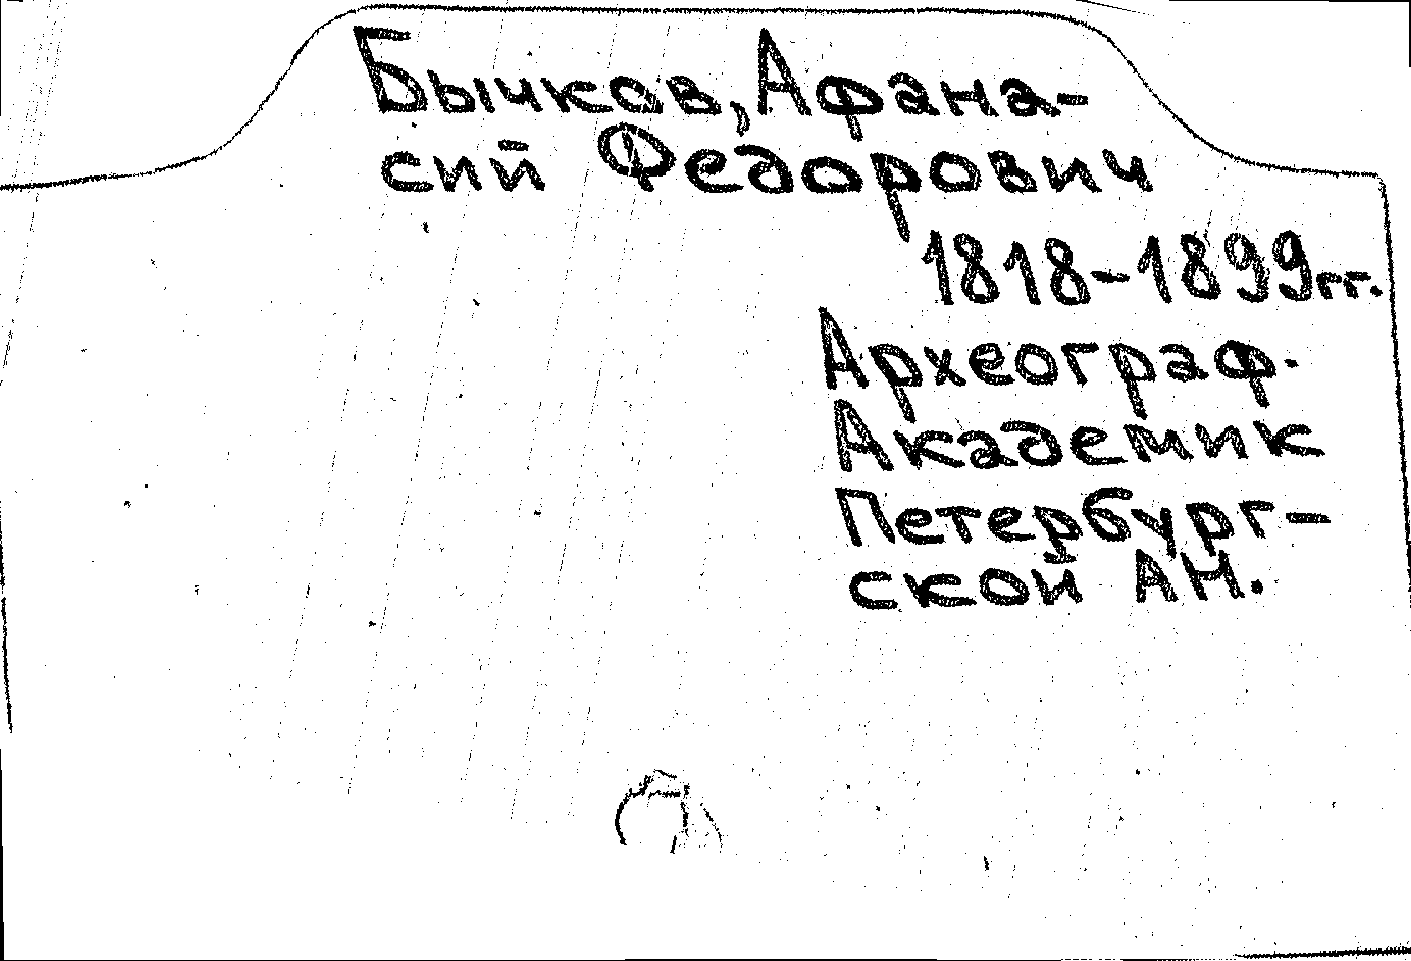 Бычков, Афана-
сий Федорович
1818-1899гг.
Археограф.
Академик
Петербург-
ской АН.